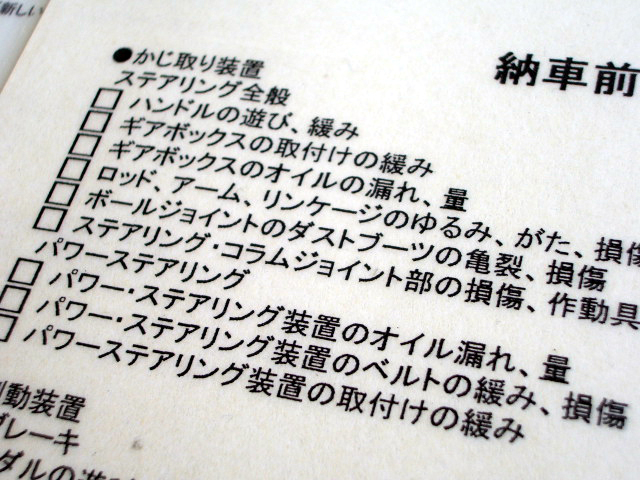 新しい
納車前
●かじ取り装置
ステアリング全般
□ ハンドルの遊び、緩み
□ ギアボックスの取付けの緩み
□ ギアボックスのオイルの漏れ、量
□ ロッド、アーム、リンケージのゆるみ、がた、損傷
□ ボールジョイントのダストブーツの亀裂、損傷
□ ステアリング・コラムジョイント部の損傷、作動具
パワーステアリング
□ パワー・ステアリング装置のオイル漏れ、量
□ パワー・ステアリング装置のベルトの緩み、損傷
□ パワーステアリング装置の取付けの緩み
制動装置
ブレーキ
ダルの遊び